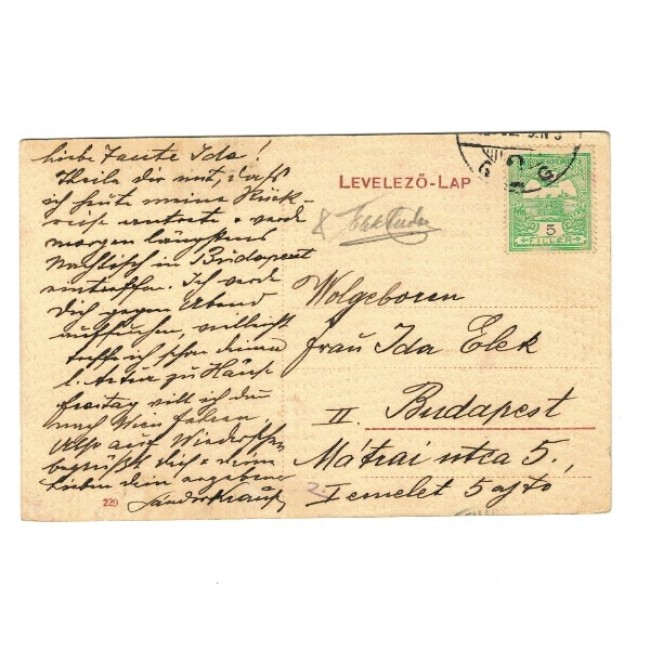 Liebe Tante Ida!
Theile dir mit, dass
ich heute meine Rück-
reise antrete u werde
morgen längstens
Nachtisch in Budapest
eintreffen. Ich werde
Dich gegen Abend
aufsuchen, vielleicht
treffe ich schon deinen
l. Artur zu Hause
Freitag will ich dan
nach Wien fahren,
Also auf Wiedersehn
begrüßt dich u deine
Lieben dein ergebener
Sándor
229
LEVELEZŐ-LAP
5
FILLÉR
Wolgeboren
Frau Ida Elek
II. Budapest
Mátrai utca 5.,
I emelet 5 ajtó